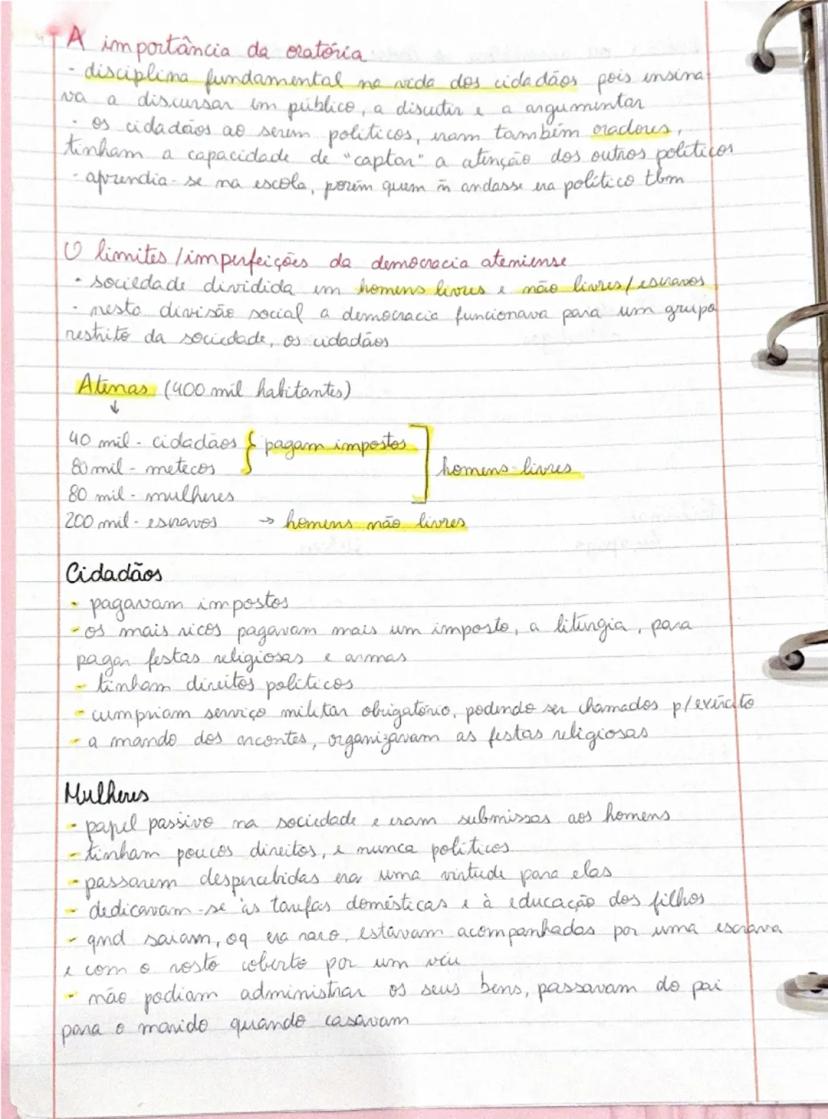 A importância da oratória
- disciplina fundamental na vida dos cidadãos pois ensina
va a discursar em público, a discutir e a argumentar
- os cidadãos ao serem politicos, eram também oradores,
tinham a capacidade de "captar" a atenção dos outros politicos
- aprendia-se na escola, porém quem ñ andasse era político tbm
O limites/imperfeições da democracia ateniense
- sociedade dividida em homens livres e não livres/escravos
- nesta divisão social a democracia funcionava para um grupo
restrito da sociedade, os cidadãos
Atenas (400 mil habitantes)
↓
40 mil - cidadãos { pagam impostos ] homens livres
80 mil - metecos
80 mil - mulheres
200 mil - escravos → homens não livres
Cidadãos
- pagavam impostos
- os mais ricos pagavam mais um imposto, a liturgia, para
pagar festas religiosas e armas
- tinham direitos politicos
- cumpriam serviço militar obrigatório, podendo ser chamados p/exército
- a mando dos arcontes, organizavam as festas religiosas
Mulheres
- papel passivo na sociedade e eram submissas aos homens
- tinham poucos direitos, e nunca politicos
- passarem despercebidas era uma virtude para elas
- dedicavam-se às tarefas domésticas e à educação dos filhos
- qnd saiam, oq era raro, estavam acompanhadas por uma escrava
e com o rosto coberto por um véu
- não podiam administrar os seus bens, passavam do pai
para o marido quando casavam